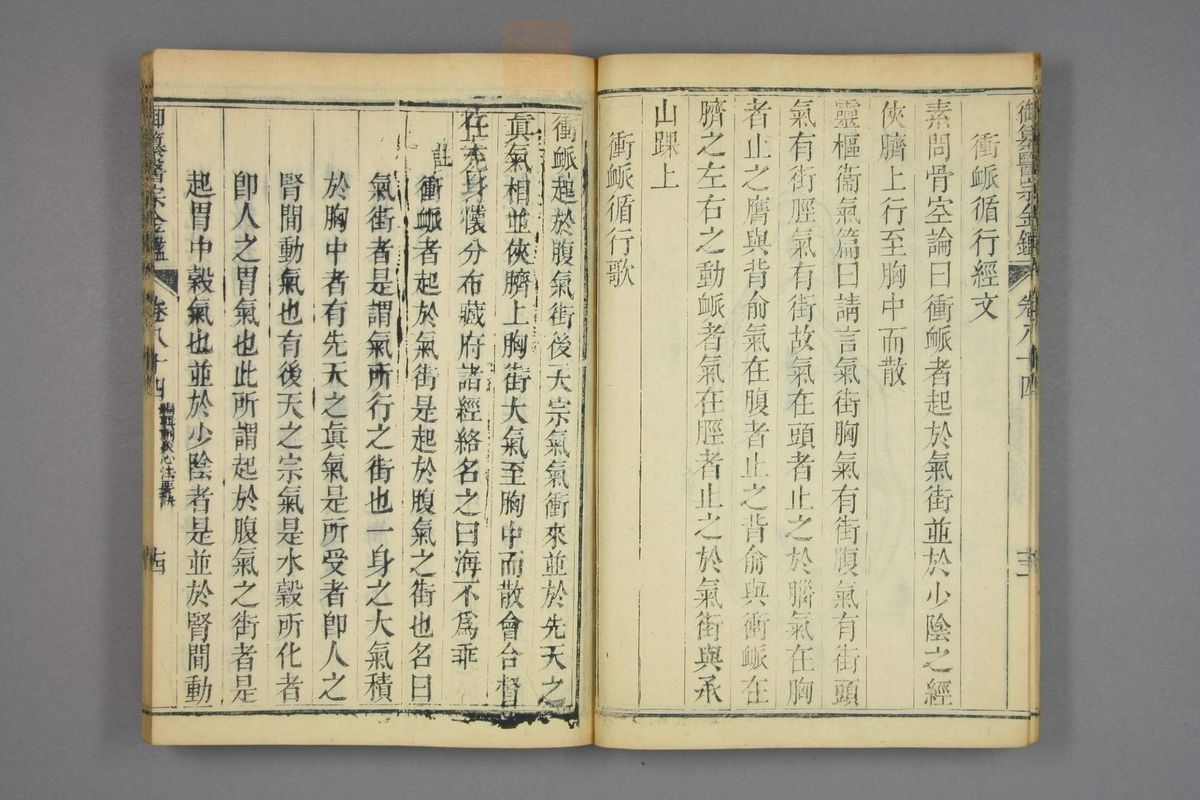 御纂醫宗金鑑 卷八十四
衝脈循行經文
素問骨空論曰衝脈者起於氣街並於少陰之經
俠臍上行至胸中而散
靈樞衞氣篇曰請言氣街胸氣有街腹氣有街頭
氣有街脛氣有街故氣在頭者止之於腦氣在胸
者止之膺與背俞氣在腹者止之背俞與衝脈在
臍之左右之動脈者氣在脛者止之於氣街與承
山踝上
衝脈循行歌
衝脈起於腹氣街後天宗氣氣衝來並於先天之
眞氣相並俠臍上胸街大氣至胸中而散會合督
任充身懷分布藏府諸經絡名之曰海不爲乖
註
衝脈者起於氣街是起於腹氣之街也名曰
氣街者是謂氣所行之街也一身之大氣積
於胸中者有先天之眞氣是所受者卽人之
腎間動氣也有後天之宗氣是水穀所化者
卽人之胃氣也此所謂起於腹氣之街者是
起胃中穀氣也並於少陰者是並於腎間動
御纂醫宗金鑑 卷八十四